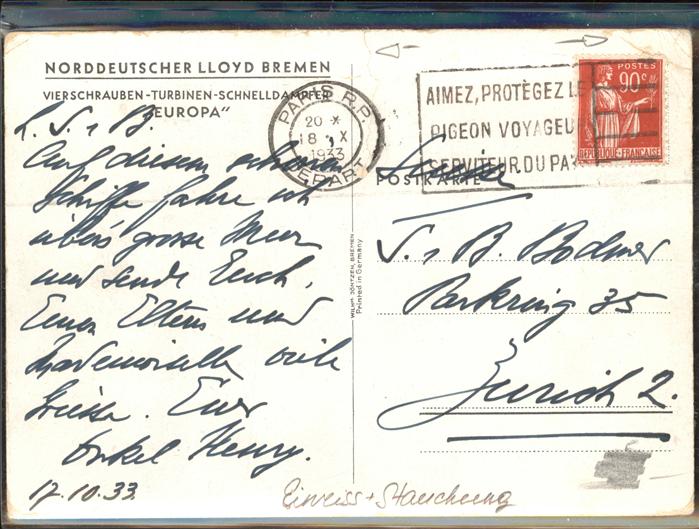 NORDDEUTSCHER LLOYD BREMEN
VIERSCHRAUBEN-TURBINEN-SCHNELLDAMPFER
"EUROPA"
L. S. u B.
Auf diesem schönen
Schiffe fahre ich
übers grosse Meer
und sende Euch,
Euren Eltern und
Mademoiselle viele
Grüsse. Euer
Onkel Henry.
17.10.33.
PARIS R.P.
20 *
18 X
1933
DEPART
AIMEZ, PROTÈGEZ LE
PIGEON VOYAGEU
SERVITEUR DU PA
POSTES
90c
REPUBLIQUE FRANÇAISE
Suisse
POSTKARTE
S. u B. Bodmer
Parkring 35
Zürich 2.
WILH. JÖNTZEN, BREMEN
Printed in Germany
Einriss + Stauchung